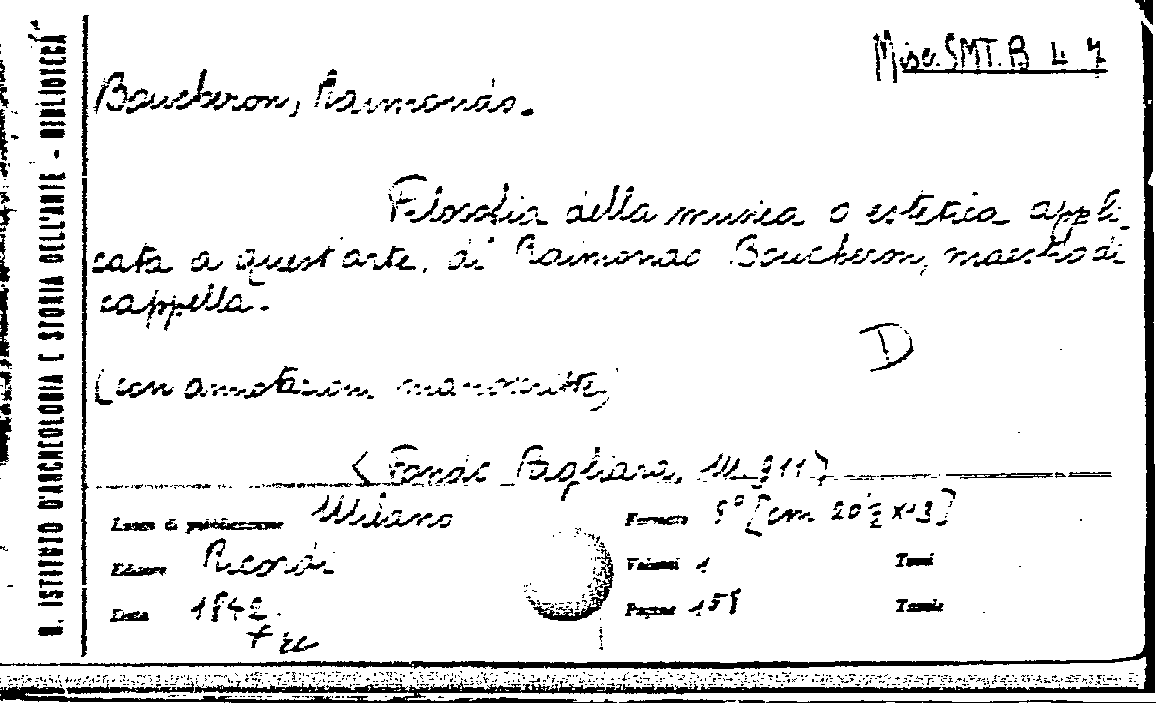 R. ISTITUTO D'ARCHEOLOGIA E STORIA DELL'ARTE - BIBLIOTECA
Misc. SMT. B 47
Boucheron, Raimondo.
Filosofia della musica o estetica appli-
cata a quest'arte, di Raimondo Boucheron, maestro di
cappella.
D
(con annotazioni manoscritte)
<Fondo Pagliara, M 911>
Luogo di pubblicazione Milano
Formato 8° [cm 20½ x 13]
Editore Ricordi
Volumi 1 Tomi
Data 1842.
Pagine 158 Tavole